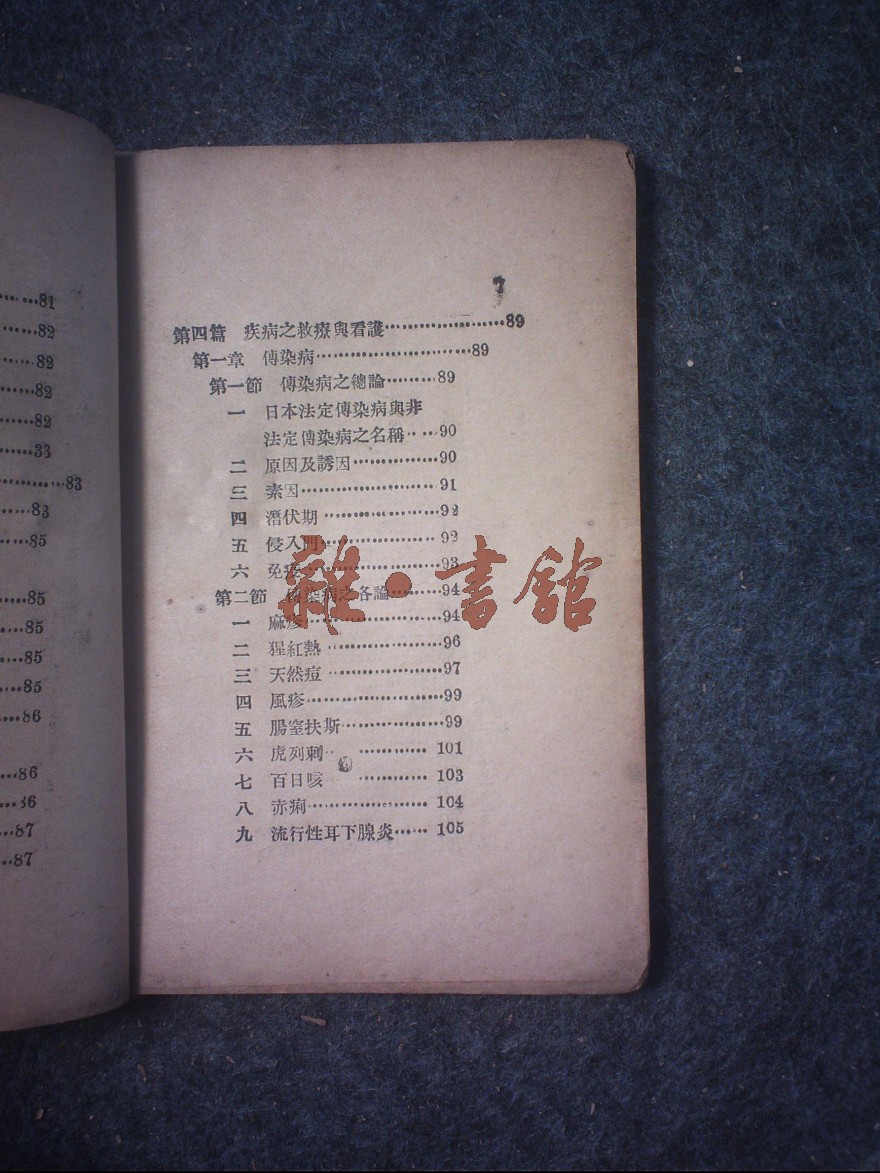 81
82
82
82
82
33
83
83
85
85
85
85
85
86
86
36
87
87
7
第四篇 疾病之救療與看護……………………89
第一章 傳染病…………………………89
第一節 傳染病之總論………89
一 日本法定傳染病與非
法定傳染病之名稱……90
二 原因及誘因………………90
三 素因………………………91
四 潛伏期……………………92
五 侵入門……………………92
六 免疫………………………93
第二節 傳染病之各論………94
一 麻疹………………………94
二 猩紅熱……………………96
三 天然痘……………………97
四 風疹………………………99
五 腸窒扶斯…………………99
六 虎列剌……………………101
七 百日咳……………………103
八 赤痢………………………104
九 流行性耳下腺炎…………105
雜·書館